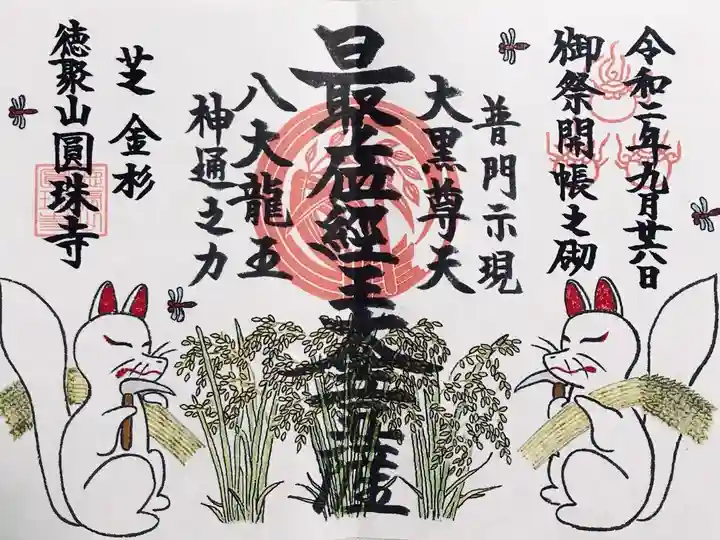 令和二年九月廿六日
御祭開帳之砌
普門示現
大黒尊天
最上位経王大菩薩
八大龍王
神通之力
芝 金杉
徳聚山圓珠寺